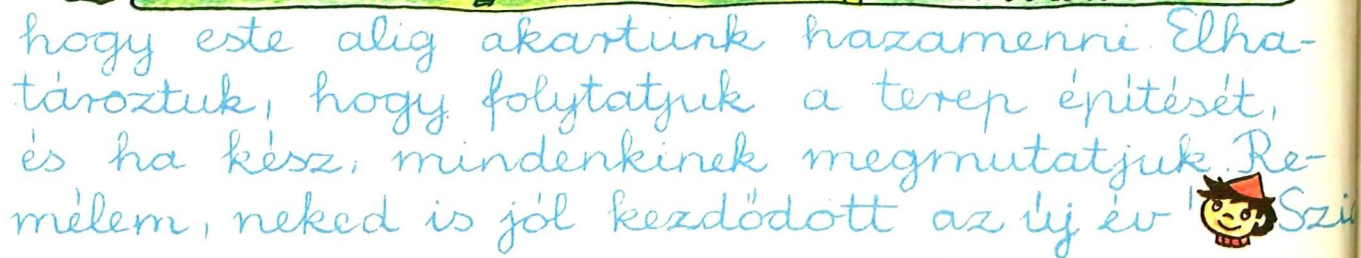 hogy este alig akartunk hazamenni. Elha-
tároztuk, hogy folytatjuk a terep építését,
és ha kész, mindenkinek megmutatjuk. Re-
mélem, neked is jól kezdődött az új év!